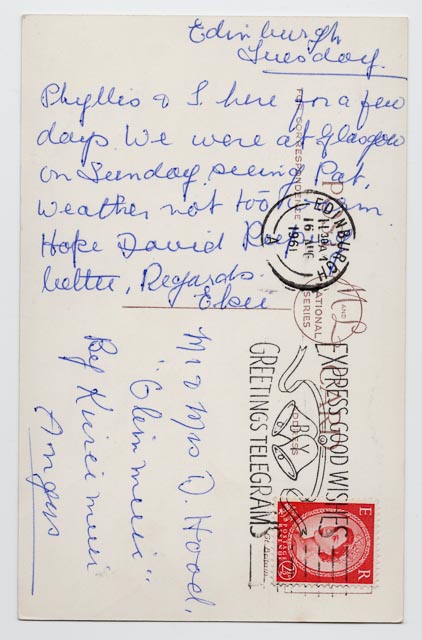 Edinburgh
Tuesday.
Phyllis & I here for a few
days. We were at Glasgow
on Sunday seeing Pat,
Weather not too warm.
Hope David Keeps
better, Regards.
Mr & Mrs D. Hood,
"Glenmuir"
By Kirriemuir
Angus
FOR CORRESPONDENCE
POST CARD
M AND L
NATIONAL
SERIES
ADDRESS
EDINBURGH
11 30 AM
16 AUG
1961
A
EXPRESS GOOD WISHES
GREETINGS TELEGRAMS
E R
POSTAGE
2½D